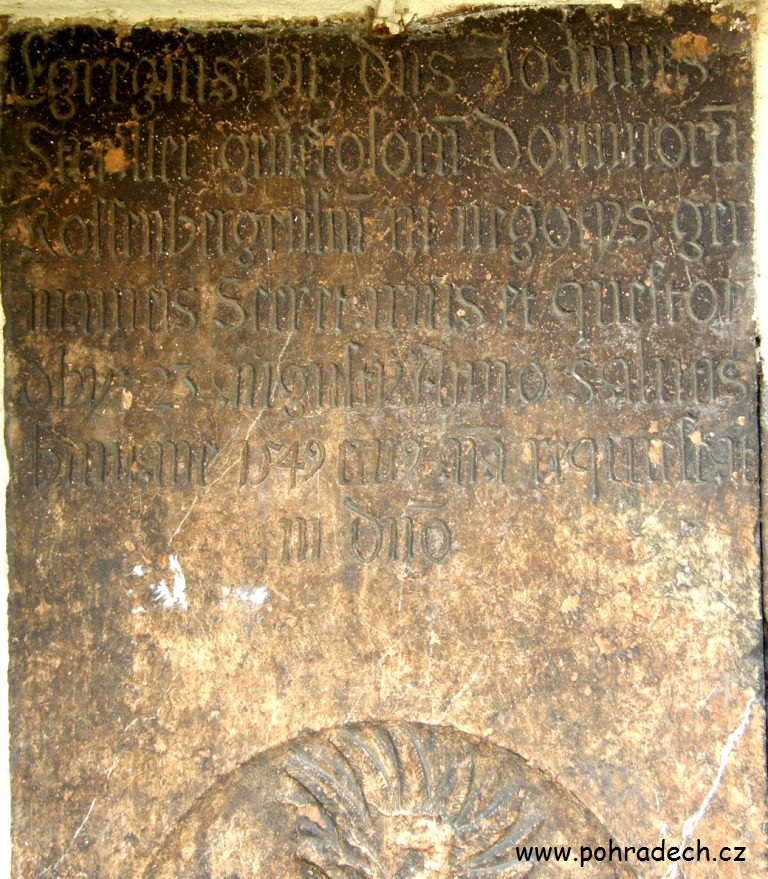 Egregius vir dns Joannes
generosorū dominorū
Rossenbergensiū in negocys ger
manicis Secretarius et questor
obyt 23 Augusti Anno salutis
humane 1549 cui9 aīa requiescat
in dno
www.pohradech.cz